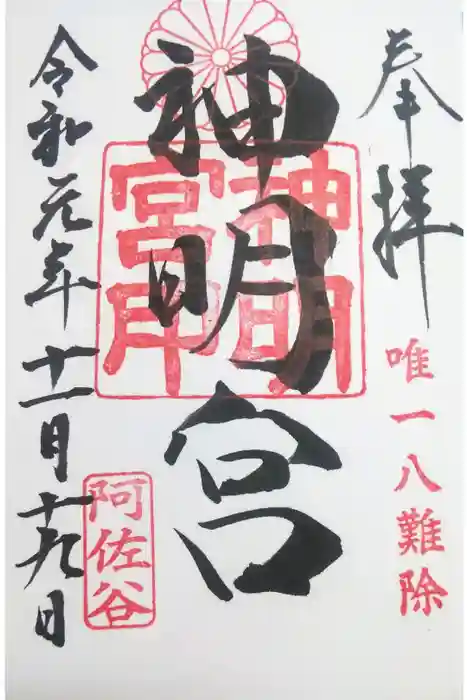 奉拝
唯一八難除
神明宮
神明
宮印
令和元年十一月十九日
阿佐谷